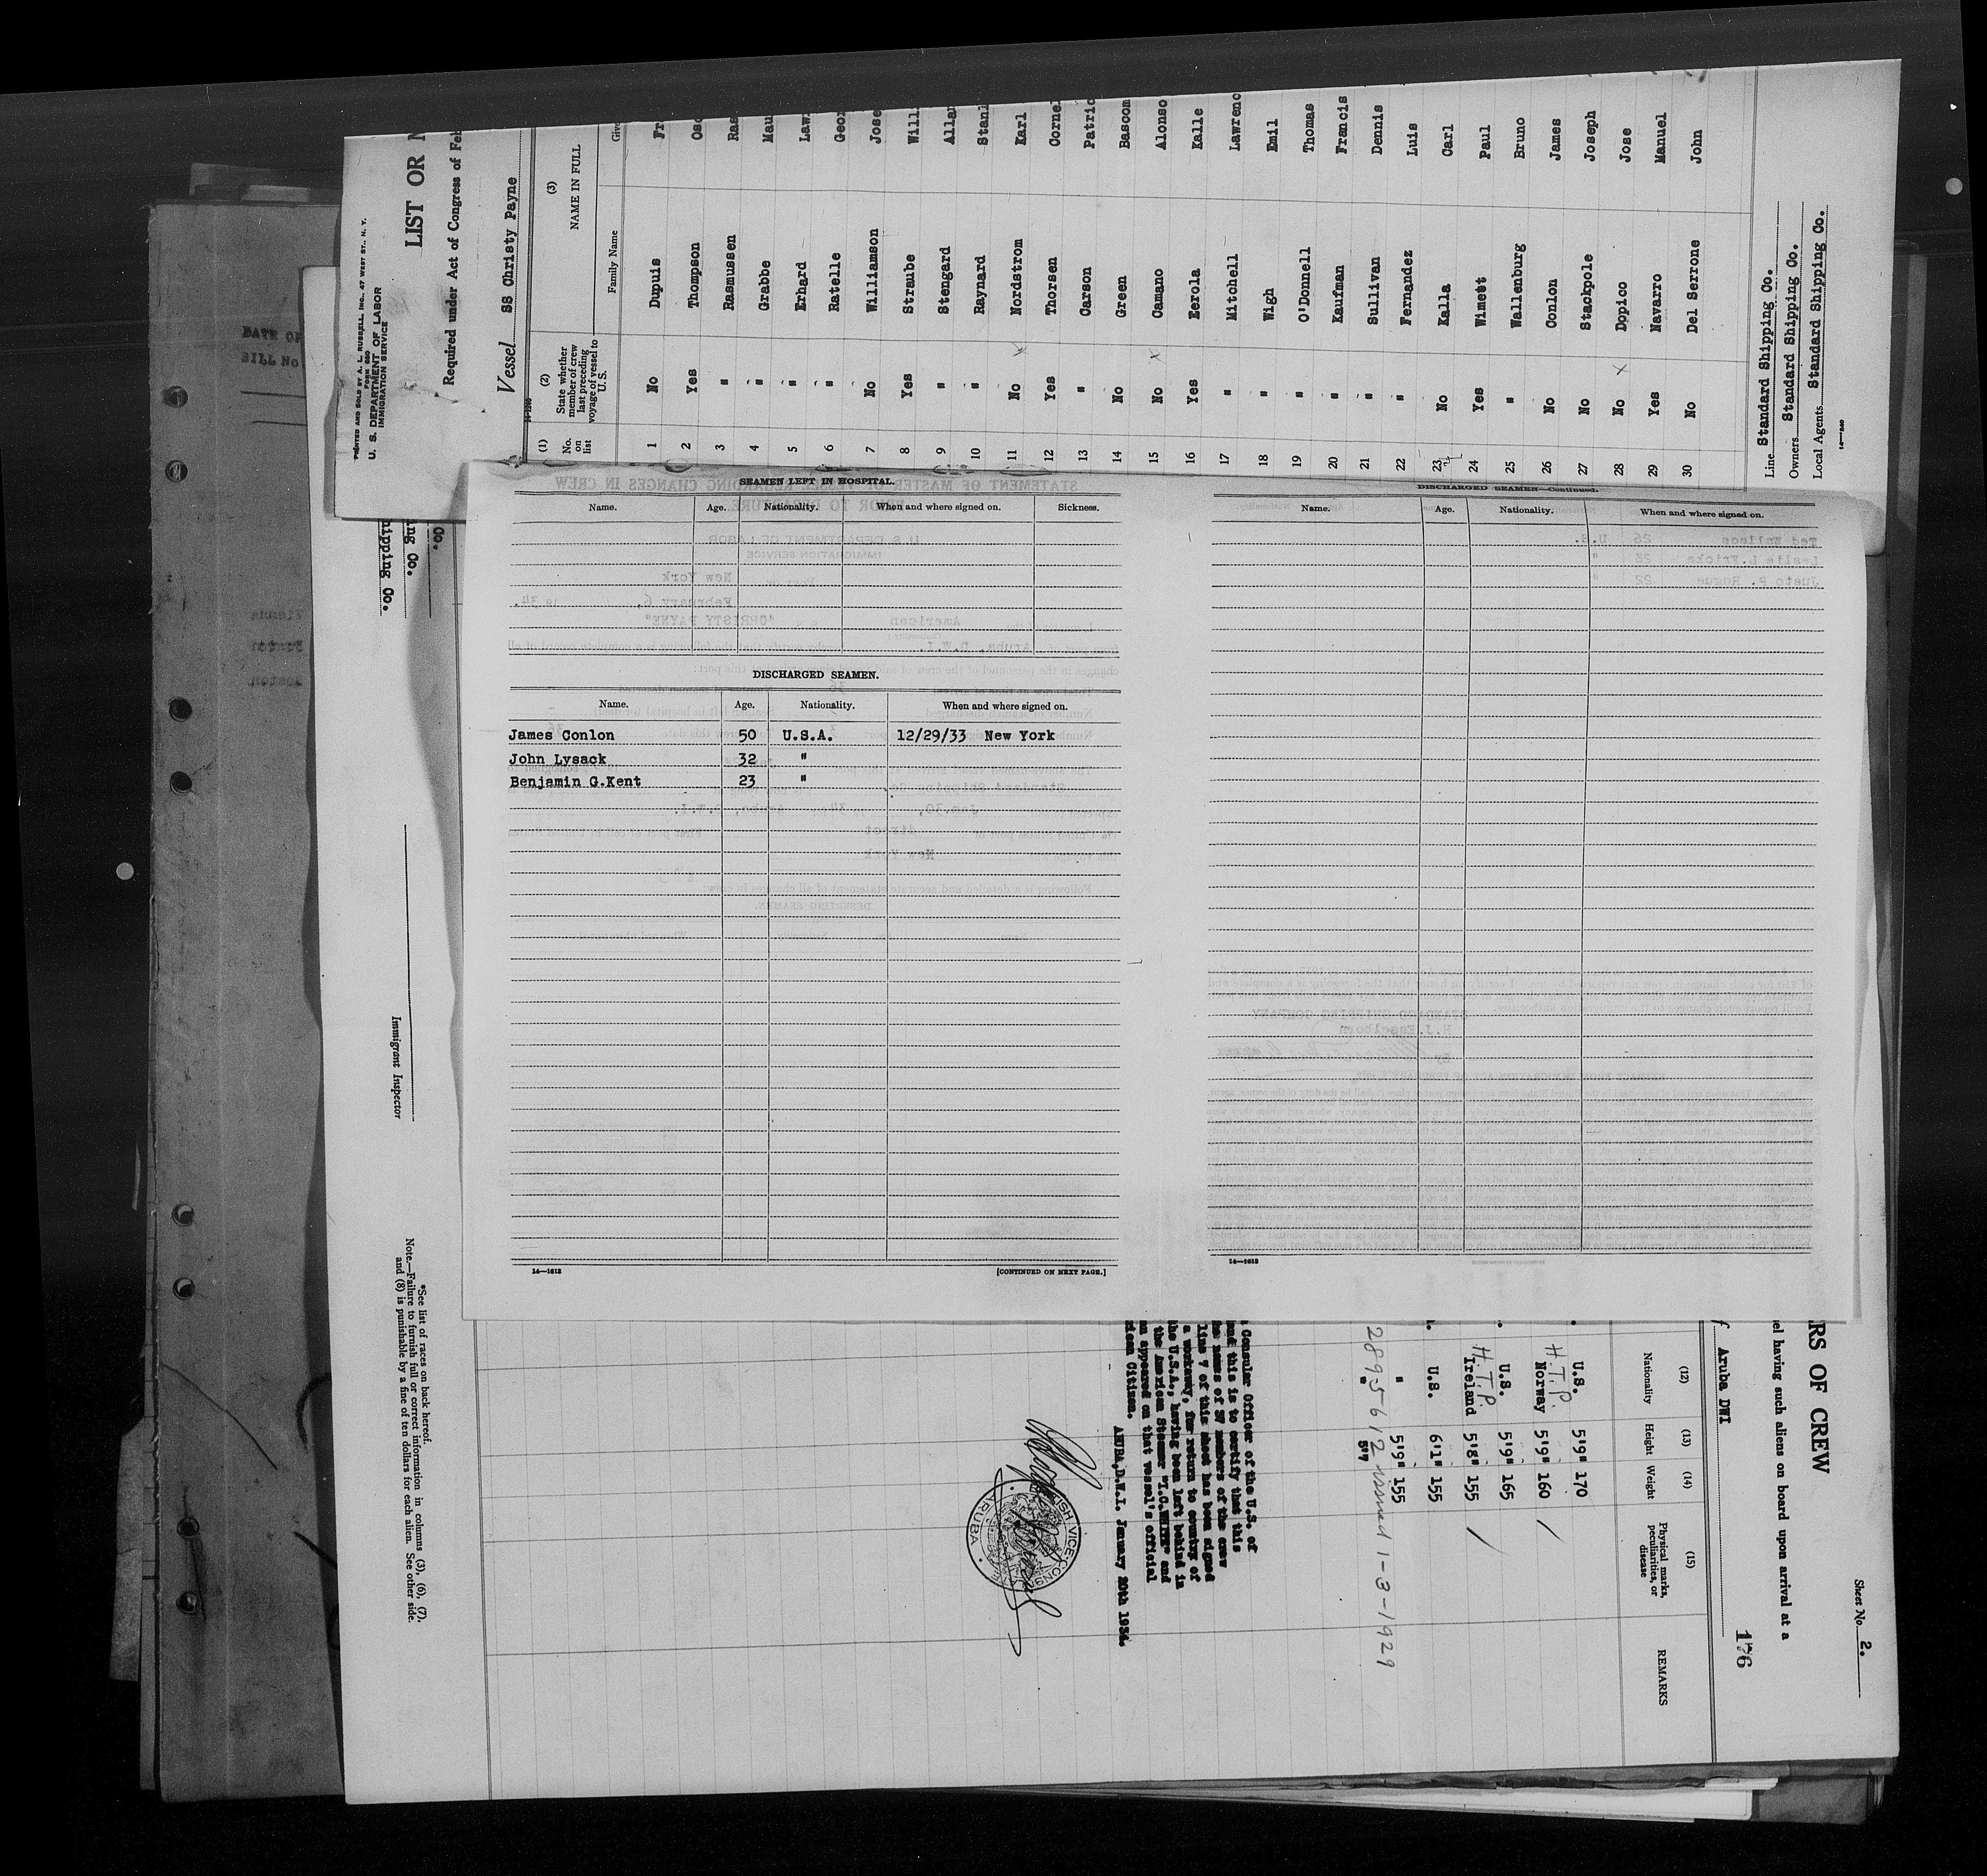 PRINTED AND SOLD BY A. L. RUSSELL, INC., 47 WEST ST., N. Y.
FORM 680
U. S. DEPARTMENT OF LABOR
IMMIGRATION SERVICE
LIST OR
Required under Act of Congress of Feb
Vessel SS Christy Payne
(1) (2) (3)
No. on list
State whether member of crew last preceding voyage of vessel to U.S.
NAME IN FULL
Family Name Give
1 No Dupuis Fr
2 Yes Thompson Osc
3 " Rasmussen Ras
4 " Grabbe Mau
5 " Erhard Law
6 " Ratelle Geor
7 No Williamson Jose
8 Yes Straube Will
9 " Stengard Alla
10 " Raynard Stanl
11 No Nordstrom Karl
12 Yes Thorsen Corne
13 " Carson Patric
14 No Green Bascom
15 No Camano Alonso
16 Yes Eerola Kalle
17 " Mitchell Lawrenc
18 " Wigh Emil
19 " O'Donnell Thomas
20 " Kaufman Francis
21 " Sullivan Dennis
22 " Fernandez Luis
23 No Kalla Carl
24 Yes Wimett Paul
25 " Wallenburg Bruno
26 No Conlon James
27 No Stackpole Joseph
28 No Dopico Jose
29 Yes Navarro Manuel
30 No Del Serrone John
Line Standard Shipping Co.
Owners Standard Shipping Co.
Local Agents Standard Shipping Co.
SEAMEN LEFT IN HOSPITAL.
Name. Age. Nationality. When and where signed on. Sickness.
DISCHARGED SEAMEN.
Name. Age. Nationality. When and where signed on.
James Conlon 50 U.S.A. 12/29/33 New York
John Lysack 32 "
Benjamin G.Kent 23 "
14—1612
[CONTINUED ON NEXT PAGE.]
DISCHARGED SEAMEN—Continued.
Name. Age. Nationality. When and where signed on.
14—1612
Co.
ng Co.
hipping Co.
Immigrant Inspector
*See list of races on back hereof.
Note.—Failure to furnish full or correct information in columns (3), (6), (7),
and (8) is punishable by a fine of ten dollars for each alien. See other side.
Sheet No. 2.
RS OF CREW
el having such aliens on board upon arrival at a
176
Aruba DWI
(12) (13) (14) (15)
Nationality Height Weight Physical marks, peculiarities, or disease REMARKS
U.S. 5'9" 170
H.T.P.
Norway 5'9" 160
U.S. 5'9" 165
H.T.P.
Ireland 5'8" 155
U.S. 6'1" 155
" 5'9" 155
" 5'7
289561 2 issued 1-3-1929
Consular Officer of the U.S. of
and this is to certify that this
he names of 37 members of the crew
line 7 of this sheet has been signed
a workaway, for return to country of
the U.S.A., having been left behind in
the American Steamer "I.C.WHITE" and
an appeared on that vessel's official
rican Citizen.
ARUBA,D.W.I. January 20th 1934.
VICE-CONS
ARUBA